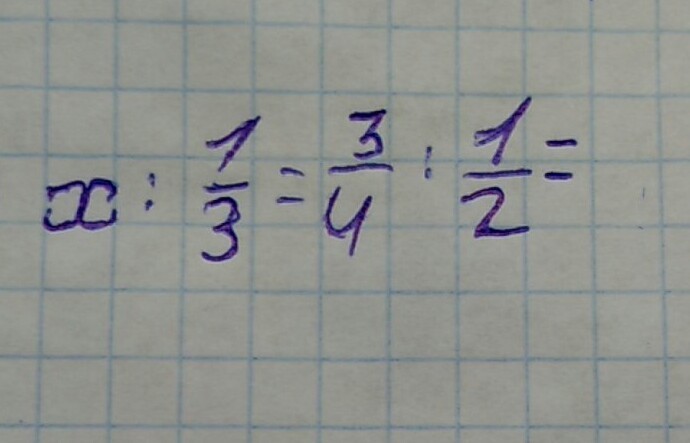 x : 1/3 = 3/4 : 1/2 =